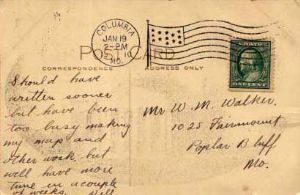 COLUMBIA
JAN 19
2-PM
MO.
POST CARD
CORRESPONDENCE
ADDRESS ONLY
Should have
written sooner
but have been
too busy making
my map and
other work but
will have more
time in a couple
of weeks. Will
Mr W. M. Walker.
1025 Fairmount
Poplar Bluff
Mo.